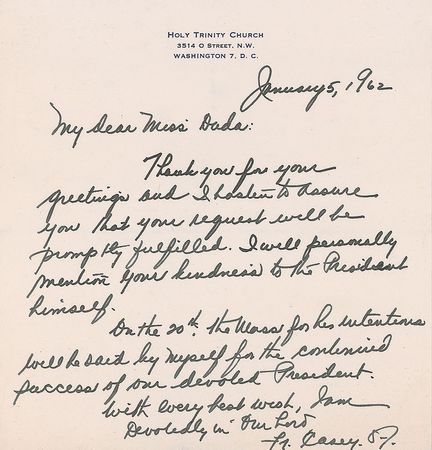 HOLY TRINITY CHURCH
3514 O STREET, N.W.
WASHINGTON 7, D. C.
January 5, 1962
My dear Miss Duda:
Thank you for your
greetings and I hasten to assure
you that your request will be
promptly fulfilled. I will personally
mention your kindness to the President
himself.
On the 20th. the Mass for his intentions
will be said by myself for the continued
success of our devoted President.
With every best wish, I am
Devotedly in Our Lord
Fr. Casey. S.J.